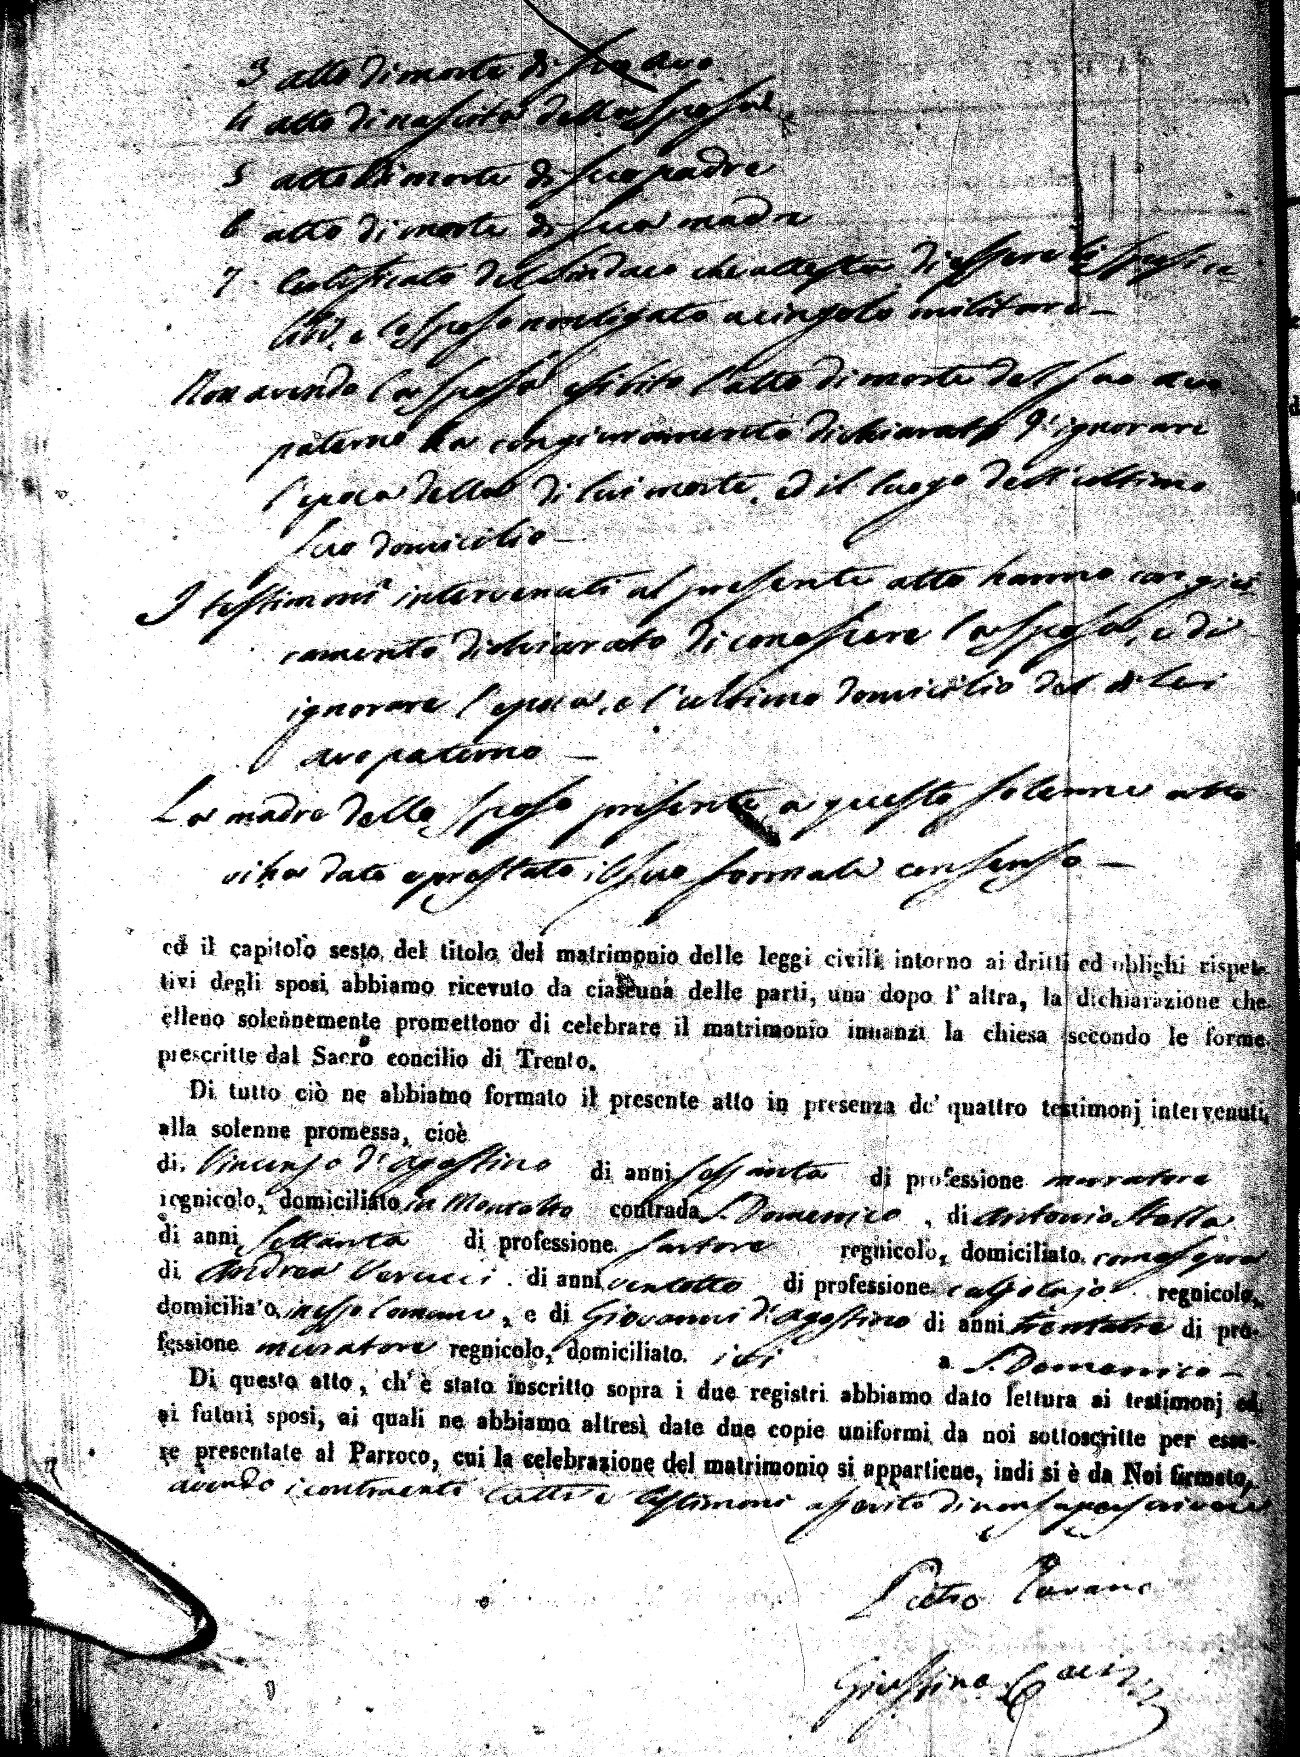 3 atto di morte di suo avo
4 atto di nascita della sposa
5 atto di morte di suo padre
6 atto di morte di sua madre
7 Certificato del Sindaco che attesta di essere
e lo sposo non ligato a cingolo militare
Non avendo la sposa esibito l'atto di morte del suo avo
paterno ha con giuramento dichiarato d'ignorare
l'epoca della di lui morte, ed il luogo dell'ultimo
suo domicilio
I testimoni intervenuti al presente atto hanno con giu
ramento dichiarato di conoscere la sposa, e di
ignorare l'epoca, e l'ultimo domicilio del di lei
avo paterno
La madre dello sposo presente a questo solenne atto
vi ha dato e prestato il suo formale consenso
ed il capitolo sesto del titolo del matrimonio delle leggi civili intorno ai dritti ed oblighi rispet-
tivi degli sposi abbiamo ricevuto da ciascuna delle parti, una dopo l'altra, la dichiarazione che
elleno solennemente promettono di celebrare il matrimonio innanzi la chiesa secondo le forme
prescritte dal Sacro concilio di Trento.
Di tutto ciò ne abbiamo formato il presente atto in presenza de' quattro testimonj intervenuti
alla solenne promessa, cioè
di Vincenzo d'Agostino di anni sessanta di professione muratore
regnicolo, domiciliato in Montalto contrada S. Domenico, di Antonio Stella
di anni settanta di professione sartore regnicolo, domiciliato come sopra
di Andrea Verucci di anni ventotto di professione calzolajo regnicolo,
domiciliato in esso Comune, e di Giovanni d'Agostino di anni trentatre di pro-
fessione muratore regnicolo, domiciliato ivi a S. Domenico
Di questo atto, ch'è stato inscritto sopra i due registri abbiamo dato lettura ai testimonj ed
ai futuri sposi, ai quali ne abbiamo altresì date due copie uniformi da noi sottoscritte per esse-
re presentate al Parroco, cui la celebrazione del matrimonio si appartiene, indi si è da Noi firmato,
avendo i contraenti tutti e testimoni asserito di non saper scrivere
Pietro